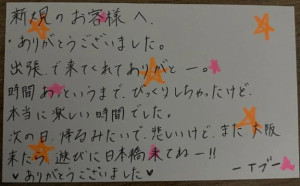 新規のお客様へ、
・ありがとうございました。
出張で来てくれてありがとー。
時間あっというまで、びっくりしちゃったけど、
本当に楽しい時間でした。
次の日、帰るみたいで、悲しいけど、また大阪
来たら、遊びに日本橋来てねー!!
♥ありがとうございました♥